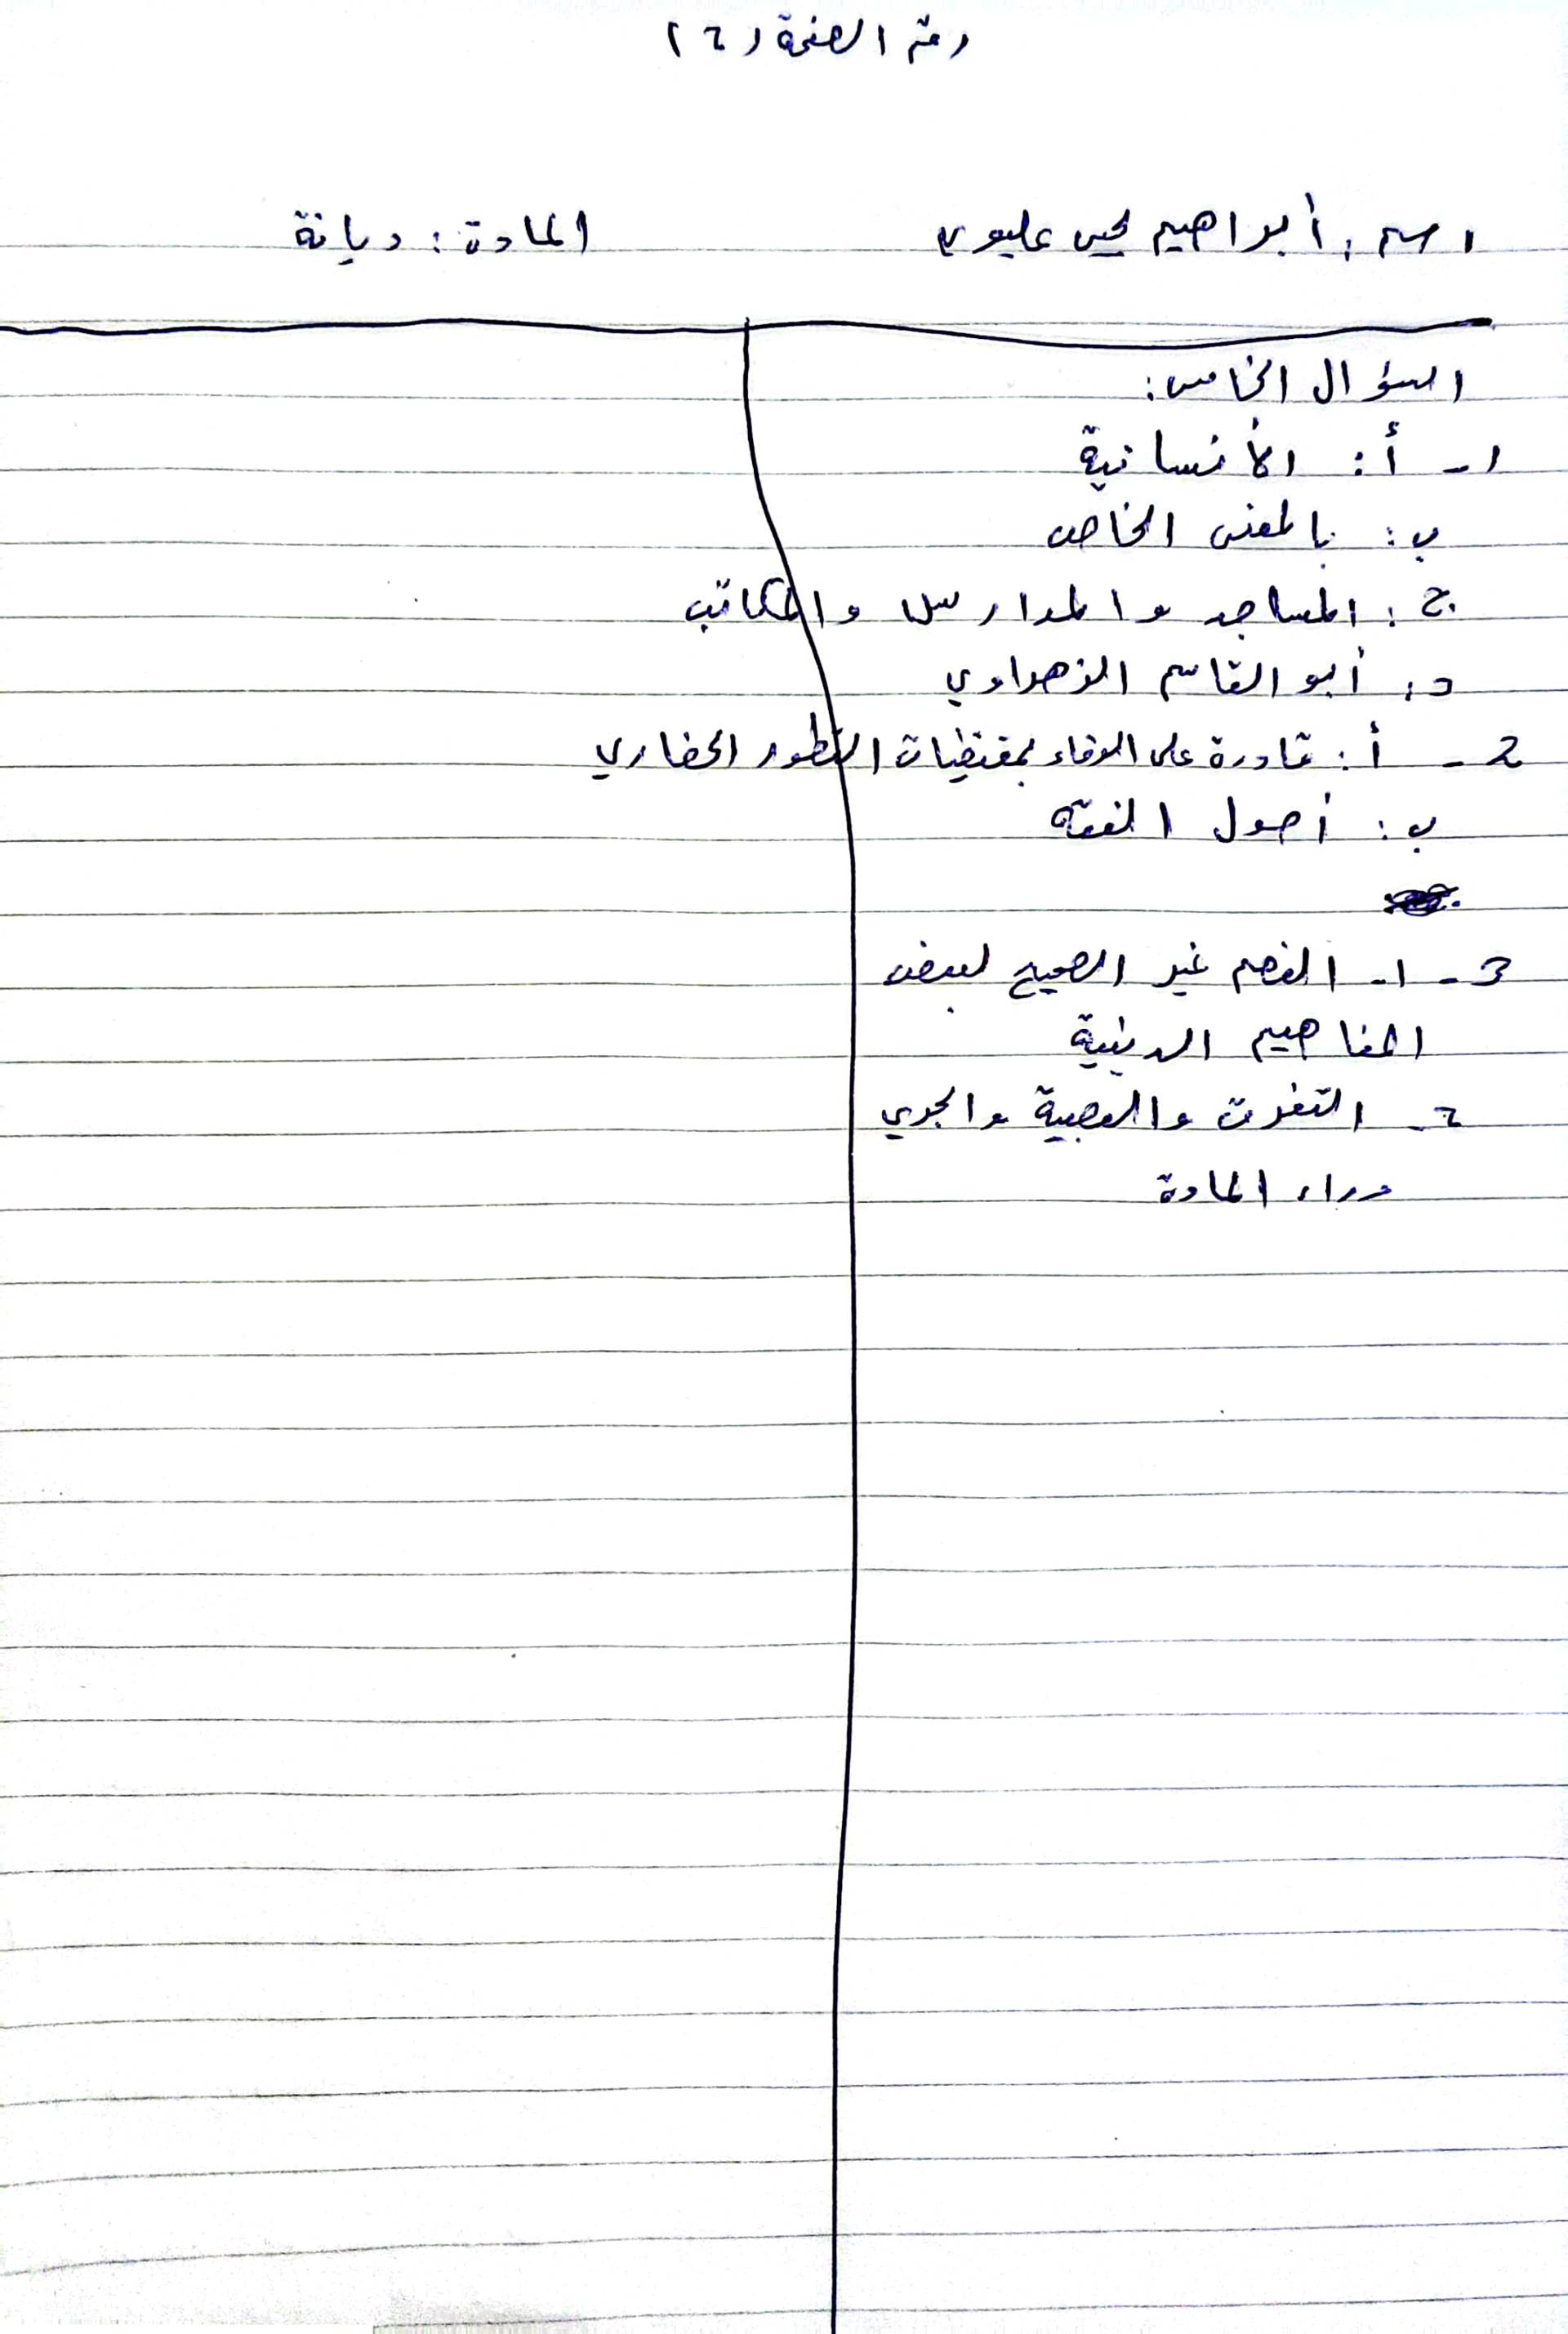 رقم الصفحة (٢)
اسم: أبراهيم يحيى عليوي المادة: ديانة
السؤال الخامس:
١- أ: الأنسانية
ب: بالمعنى الخاص
ج: المساجد والمدارس والمكاتب
د: أبو القاسم الزهراوي
2- أ: قادرة على الوفاء بمقتضيات التطور الحضاري
ب: أصول الفقه
3- ١- الفهم غير الصحيح لبعض
المفاهيم الدينية
٢- والعصبية والجري
وراء المادة